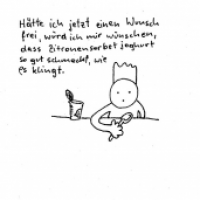 Hätte ich jetzt einen Wunsch
frei, würd ich mir wünschen,
dass Zitronensorbet joghurt
so gut schmeckt, wie
es klingt.